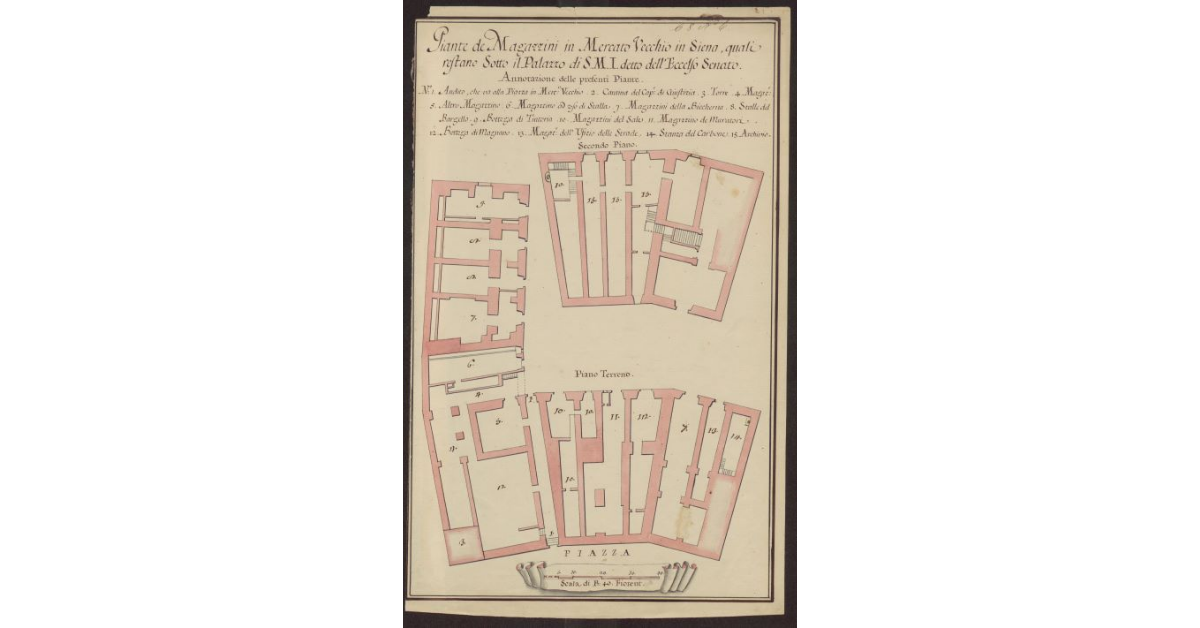 Piante de Magazzini in Mercato Vecchio in Siena, quali
restano Sotto il Palazzo di S.M.I. detto dell'Eccelso Senato.
Annotazione delle presenti Piante.
N.º 1. Andito, che va alla Piazza in Merc.º Vecchio. 2. Canova del Cap.º di Giustizia. 3. Torre. 4. Magaz.º
5. Altro Magazzino. 6. Magazzino ad uso di Stalla. 7. Magazzini della Biccherna. 8. Stalle del
Bargello. 9. Bottega di Tintoria. 10. Magazzini del Sale. 11. Magazzino de Muratori.
12. Bottega di Magnano. 13. Magaz.º dell'Ufizio delle Strade. 14. Stanza del Carbone. 15. Archivio.
Secondo Piano.
10.
15.
15.
15.
9.
7.
6.
Piano Terreno.
4.
1.
5.
10.
10.
11.
12.
9.
13.
14.
10.
3.
1.
PIAZZA
Scala di B. 40. Fiorent.